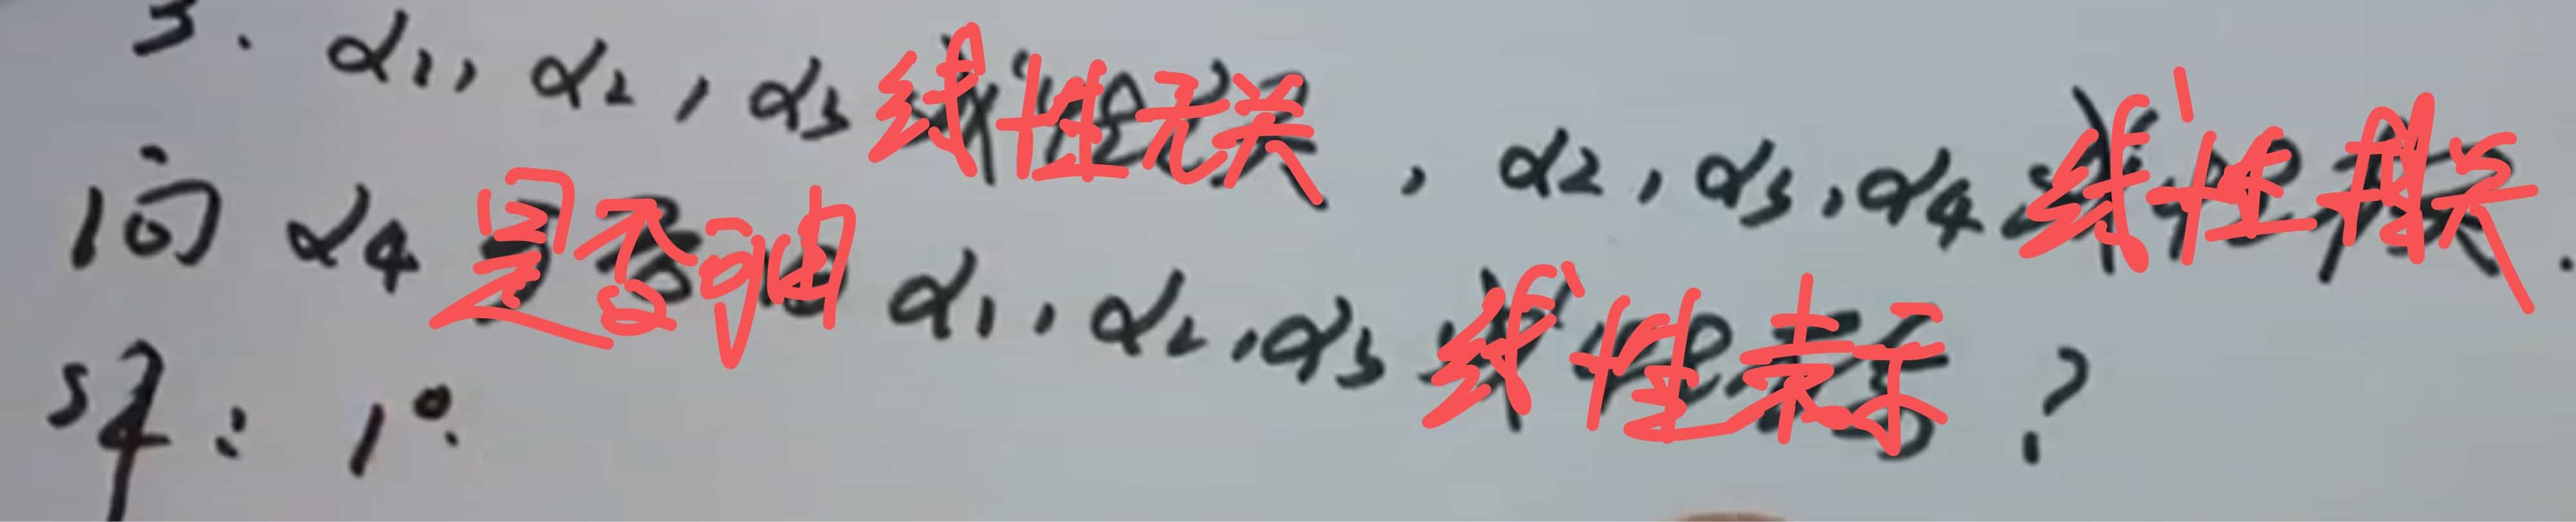 3. α1, α2, α3 线性无关, α2, α3, α4 线性相关.
问 α4 是否可由 α1, α2, α3 线性表示?
解: 1°.